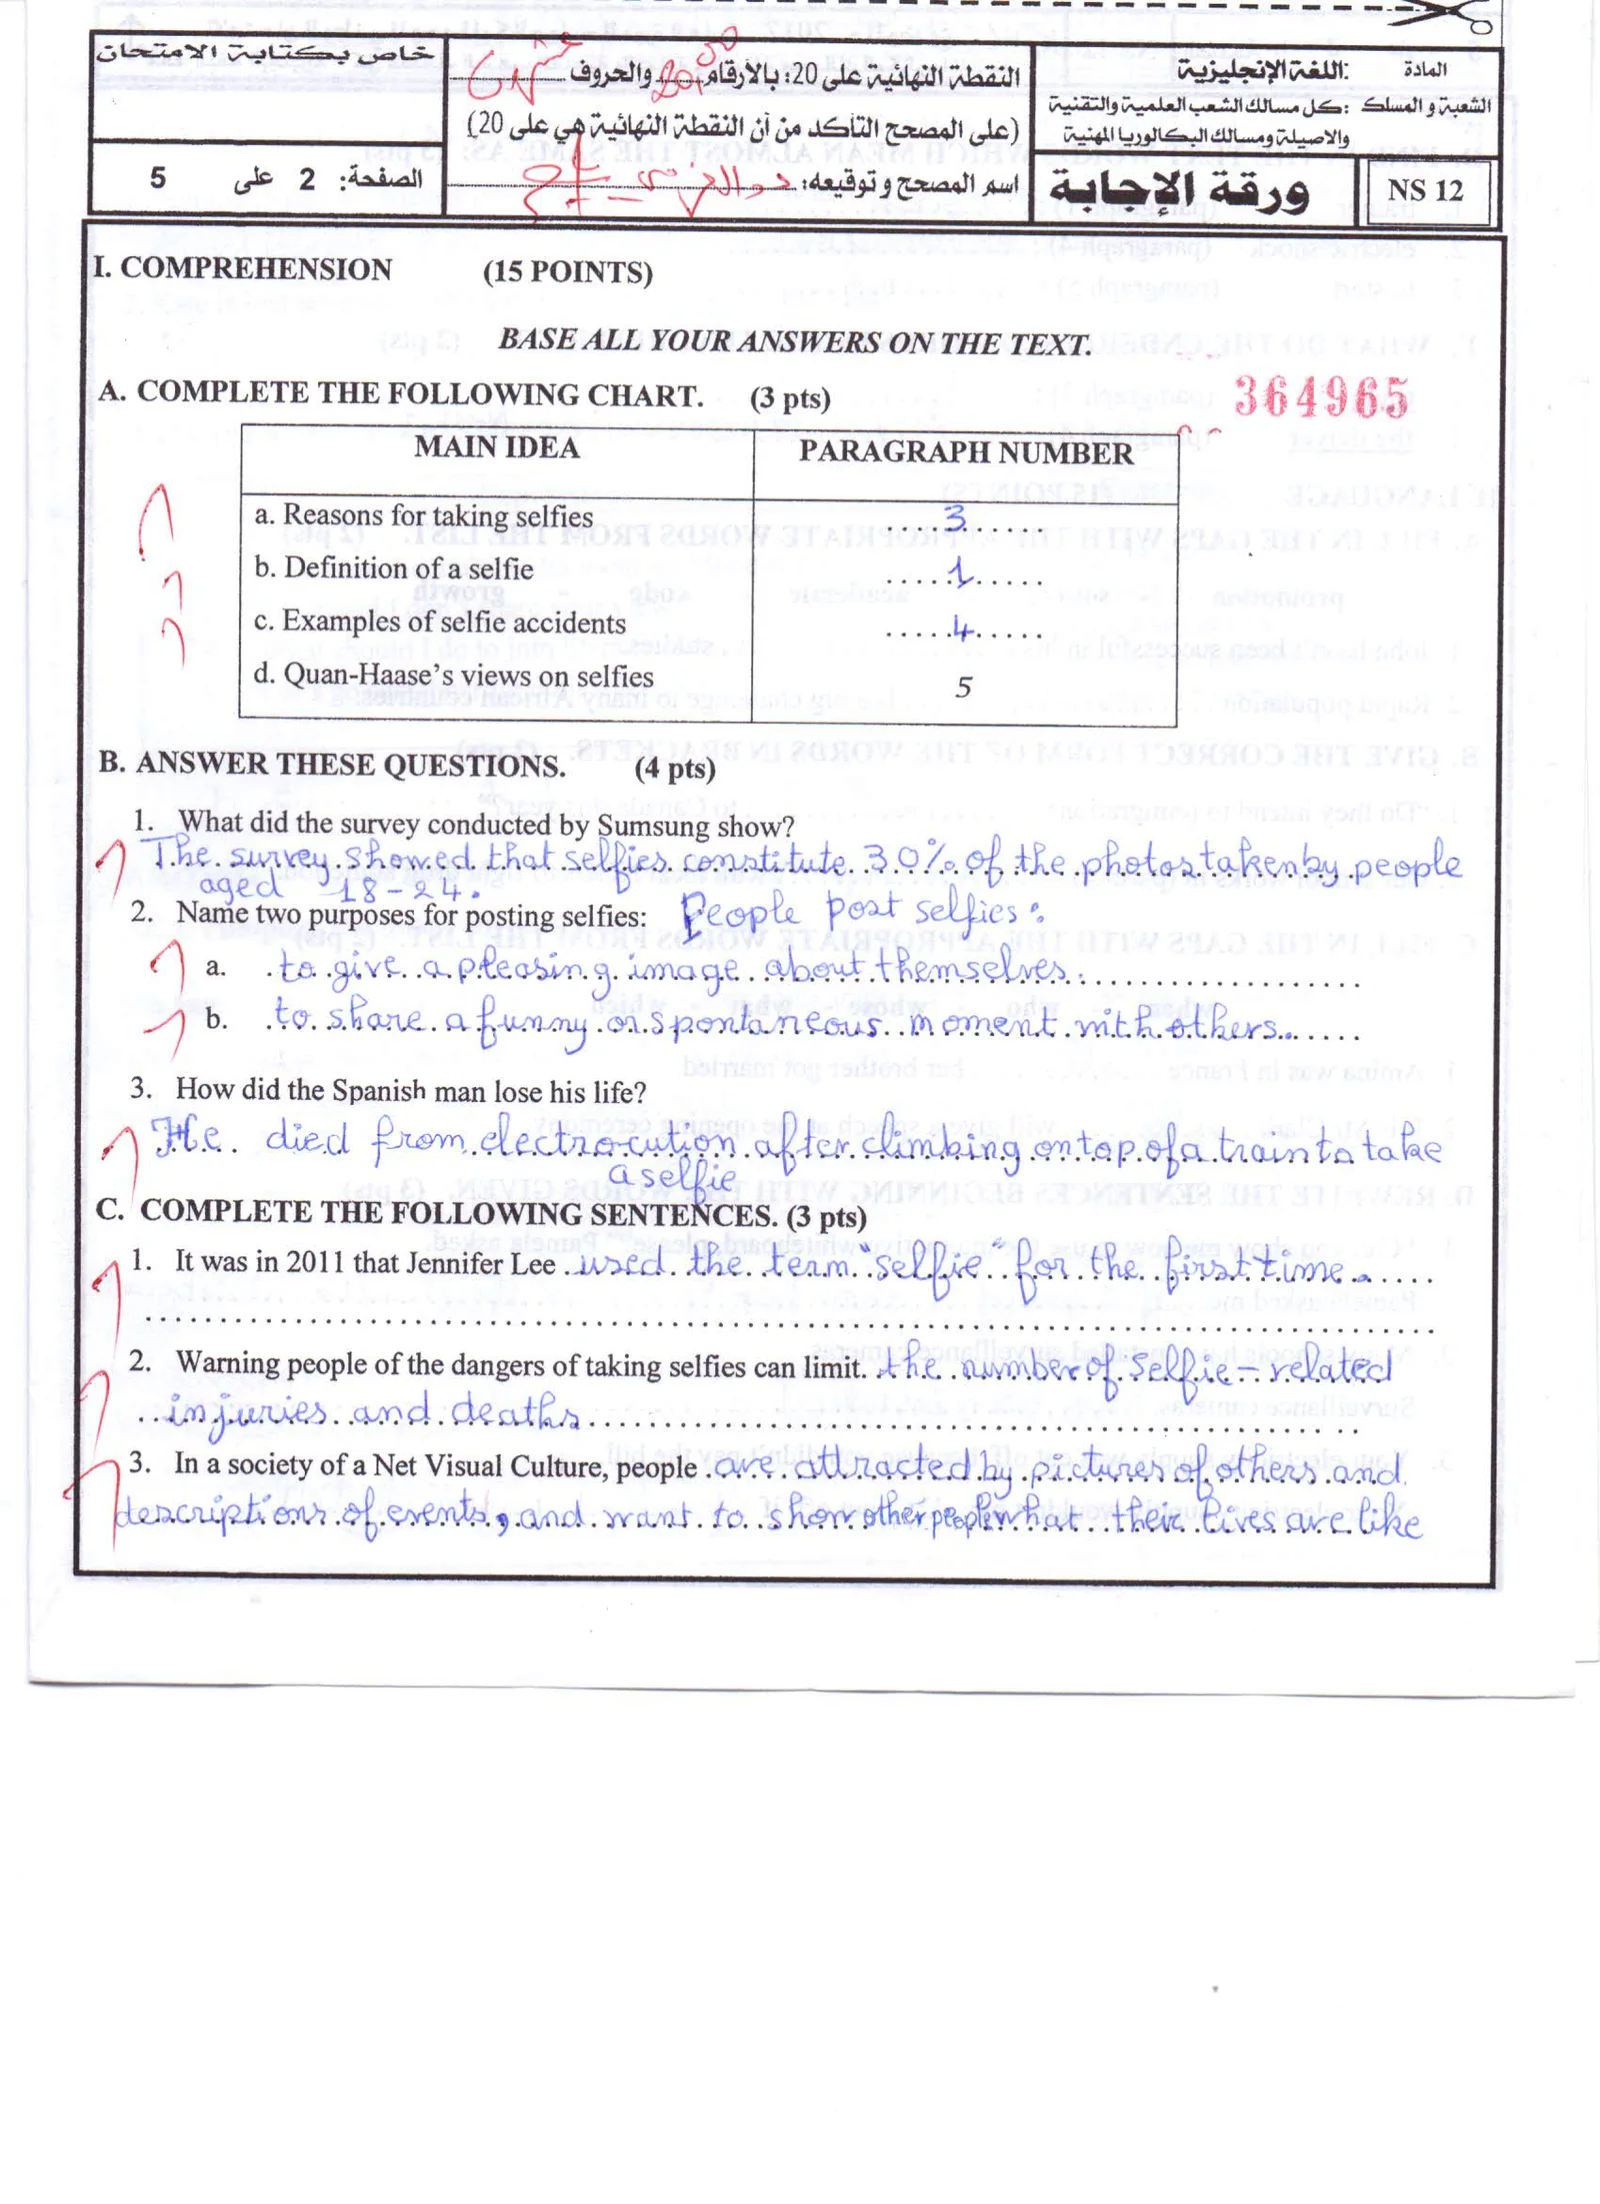 خاص بكتابة الامتحان
الصفحة: 2 على 5
النقطة النهائية على 20: بالأرقام 20,00 والحروف عشرون
(على المصحح التأكد من أن النقطة النهائية هي على 20)
اسم المصحح وتوقيعه:
المادة: اللغة الإنجليزية
الشعبة و المسلك: كل مسالك الشعب العلمية والتقنية
والاصيلة ومسالك البكالوريا المهنية
ورقة الإجابة
NS 12
I. COMPREHENSION (15 POINTS)
BASE ALL YOUR ANSWERS ON THE TEXT.
A. COMPLETE THE FOLLOWING CHART. (3 pts)
364965
MAIN IDEA PARAGRAPH NUMBER
a. Reasons for taking selfies 3
b. Definition of a selfie 1
c. Examples of selfie accidents 4
d. Quan-Haase's views on selfies 5
B. ANSWER THESE QUESTIONS. (4 pts)
1. What did the survey conducted by Sumsung show?
The survey showed that selfies constitute 30% of the photos taken by people
aged 18-24.
2. Name two purposes for posting selfies: People post selfies:
a. to give a pleasing image about themselves.
b. to share a funny or spontaneous moment with others.
3. How did the Spanish man lose his life?
He died from electrocution after climbing on top of a train to take
a selfie
C. COMPLETE THE FOLLOWING SENTENCES. (3 pts)
1. It was in 2011 that Jennifer Lee used the term "selfie" for the first time.
2. Warning people of the dangers of taking selfies can limit. the number of selfie-related
injuries and deaths
3. In a society of a Net Visual Culture, people are attracted by pictures of others and
descriptions of events, and want to show other people what their lives are like